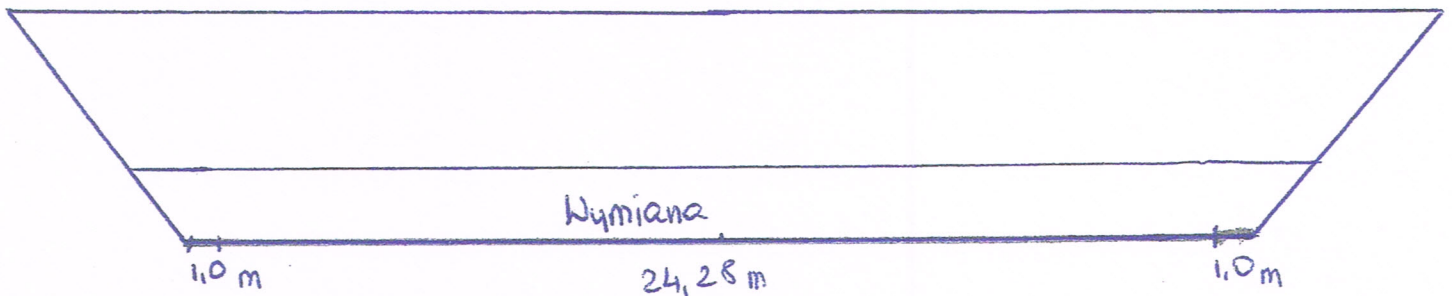 Wymiana
1,0 m 24,28 m 1,0 m